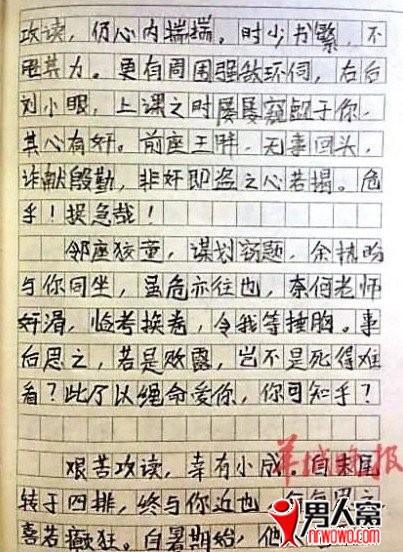 攻读，仍心内惴惴。时少书繁，不
甩其力。更有周围强敌环伺，右后
刘小眼，上课之时屡屡窥觑于你，
其心有奸。前座王胖，无事回头，
诈献殷勤，非奸即盗之心若揭。危
乎！捉急哉！
邻座狡童，谋划窃题，余执的
与你同坐，虽危亦往也，奈何老师
奸滑，临考换卷，令我等捶胸。事
后思之，若是败露，岂不是死得难
看？此乃以绳命爱你，你可知乎？
羊城晚报
艰苦攻读，幸有小成。自末尾
转于四排，终与你近也，
喜若癫狂。自暑期始，他
男人窝
www.nrwowo.com